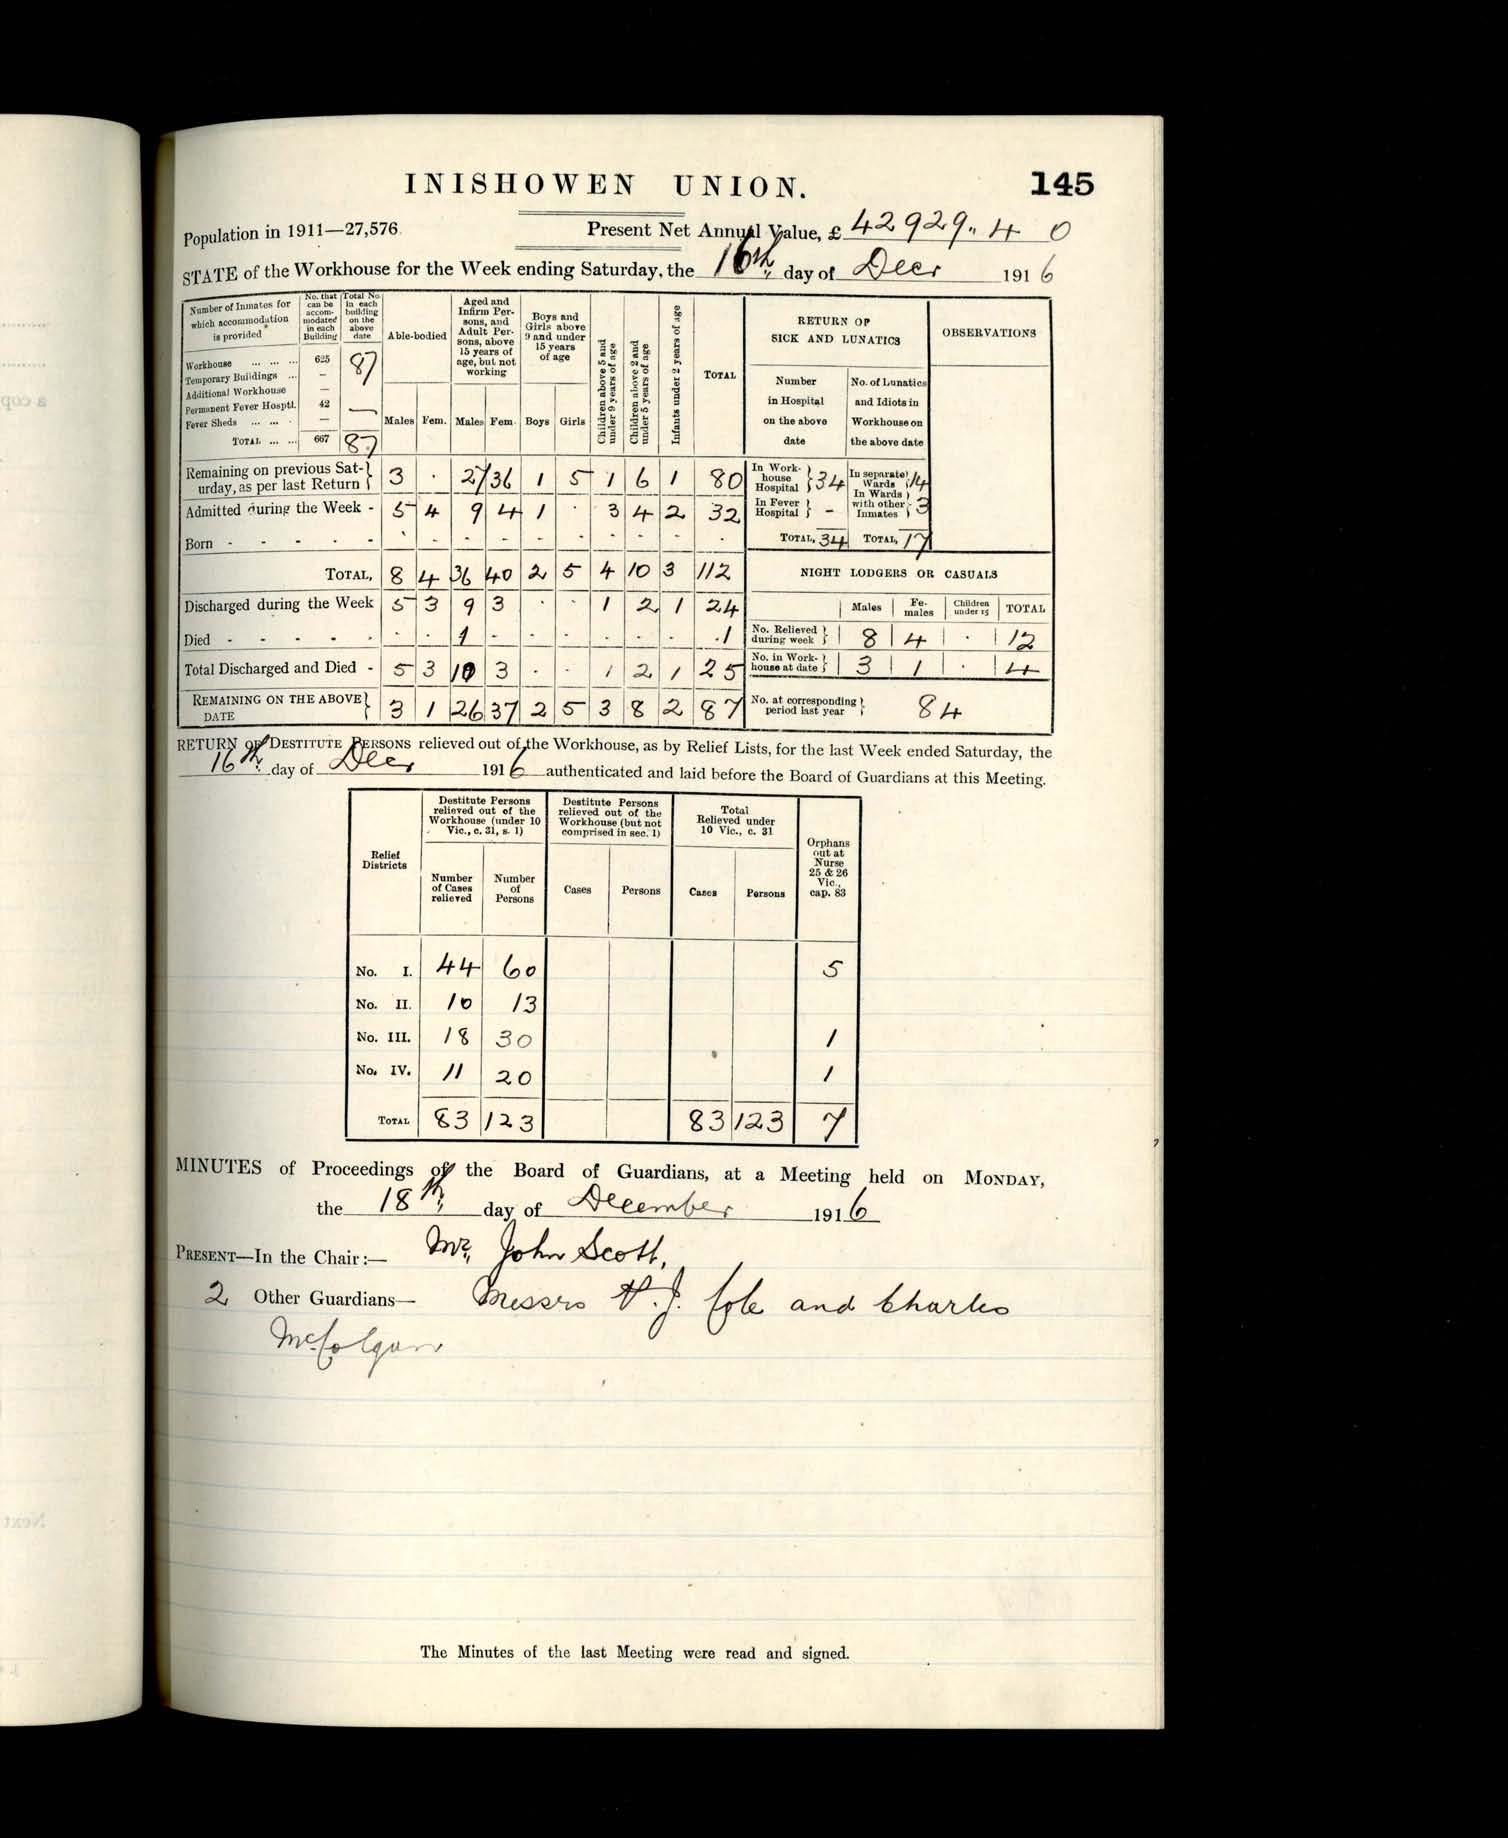 INISHOWEN UNION. 145
Population in 1911—27,576. Present Net Annual Value, £ 42929 " 4 0
STATE of the Workhouse for the Week ending Saturday, the 16th day of Decr 1916
Number of Inmates for which accommodation is provided
No. that can be accommodated in each Building
Total No. in each building on the above date
Able-bodied
Aged and Infirm Persons, and Adult Persons, above 15 years of age, but not working
Boys and Girls above 9 and under 15 years of age
Children above 5 and under 9 years of age
Children above 2 and under 5 years of age
Infants under 2 years of age
TOTAL
RETURN OF SICK AND LUNATICS
OBSERVATIONS
Workhouse ... ... ... 625 87
Temporary Buildings ... –
Additional Workhouse —
Permanent Fever Hosptl. 42 —
Fever Sheds ... ... . —
TOTAL ... ... 667 87
Males Fem. Males Fem. Boys Girls
Number in Hospital on the above date
No. of Lunatics and Idiots in Workhouse on the above date
Remaining on previous Saturday, as per last Return 3 . 27 36 1 5 1 6 1 80
Admitted during the Week - 5 4 9 4 1 . 3 4 2 32
Born - - - - - . - - - - - - - - .
TOTAL, 8 4 36 40 2 5 4 10 3 112
Discharged during the Week 5 3 9 3 . . 1 2 1 24
Died - - - - - . . 1 . . . . . . .1
Total Discharged and Died - 5 3 10 3 . . 1 2 1 25
REMAINING ON THE ABOVE DATE 3 1 26 37 2 5 3 8 2 87
In Workhouse Hospital 34 In separate Wards 14
In Fever Hospital - In Wards with other Inmates 3
TOTAL, 34 TOTAL, 17
NIGHT LODGERS OR CASUALS
Males Females Children under 15 TOTAL
No. Relieved during week 8 4 . 12
No. in Workhouse at date 3 1 . 4
No. at corresponding period last year 84
RETURN OF DESTITUTE PERSONS relieved out of the Workhouse, as by Relief Lists, for the last Week ended Saturday, the
16th day of Decr 1916 authenticated and laid before the Board of Guardians at this Meeting.
Relief Districts
Destitute Persons relieved out of the Workhouse (under 10 Vic., c. 31, s. 1)
Destitute Persons relieved out of the Workhouse (but not comprised in sec. 1)
Total Relieved under 10 Vic., c. 31
Orphans out at Nurse 25 & 26 Vic., cap. 83
Number of Cases relieved Number of Persons Cases Persons Cases Persons
No. I. 44 60 5
No. II. 10 13
No. III. 18 30 1
No. IV. 11 20 1
TOTAL 83 123 83 123 7
MINUTES of Proceedings of the Board of Guardians, at a Meeting held on MONDAY,
the 18th, day of December 1916
PRESENT—In the Chair:— Mr. John Scott,
2 Other Guardians— Messrs J. Cole and Charles
McColgan
The Minutes of the last Meeting were read and signed.